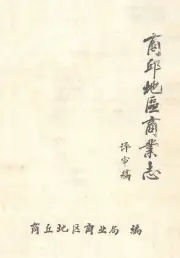 商邱地區商業志
评审稿
商丘地区商业局 编